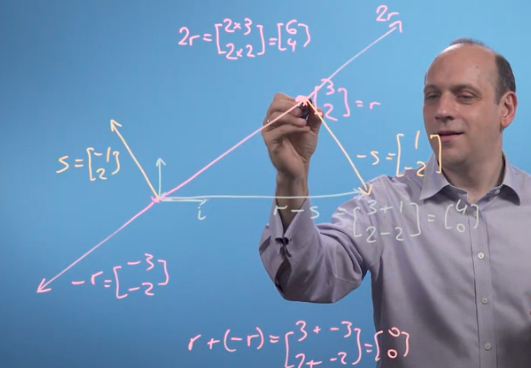 2r
2r = [2×3 2×2] = [6 4]
[3 2] = r
s = [-1 2]
-s = [1 -2]
i
r - s = [3+1 2-2] = [4 0]
-r = [-3 -2]
r + (-r) = [3 + -3 2 + -2] = [0 0]